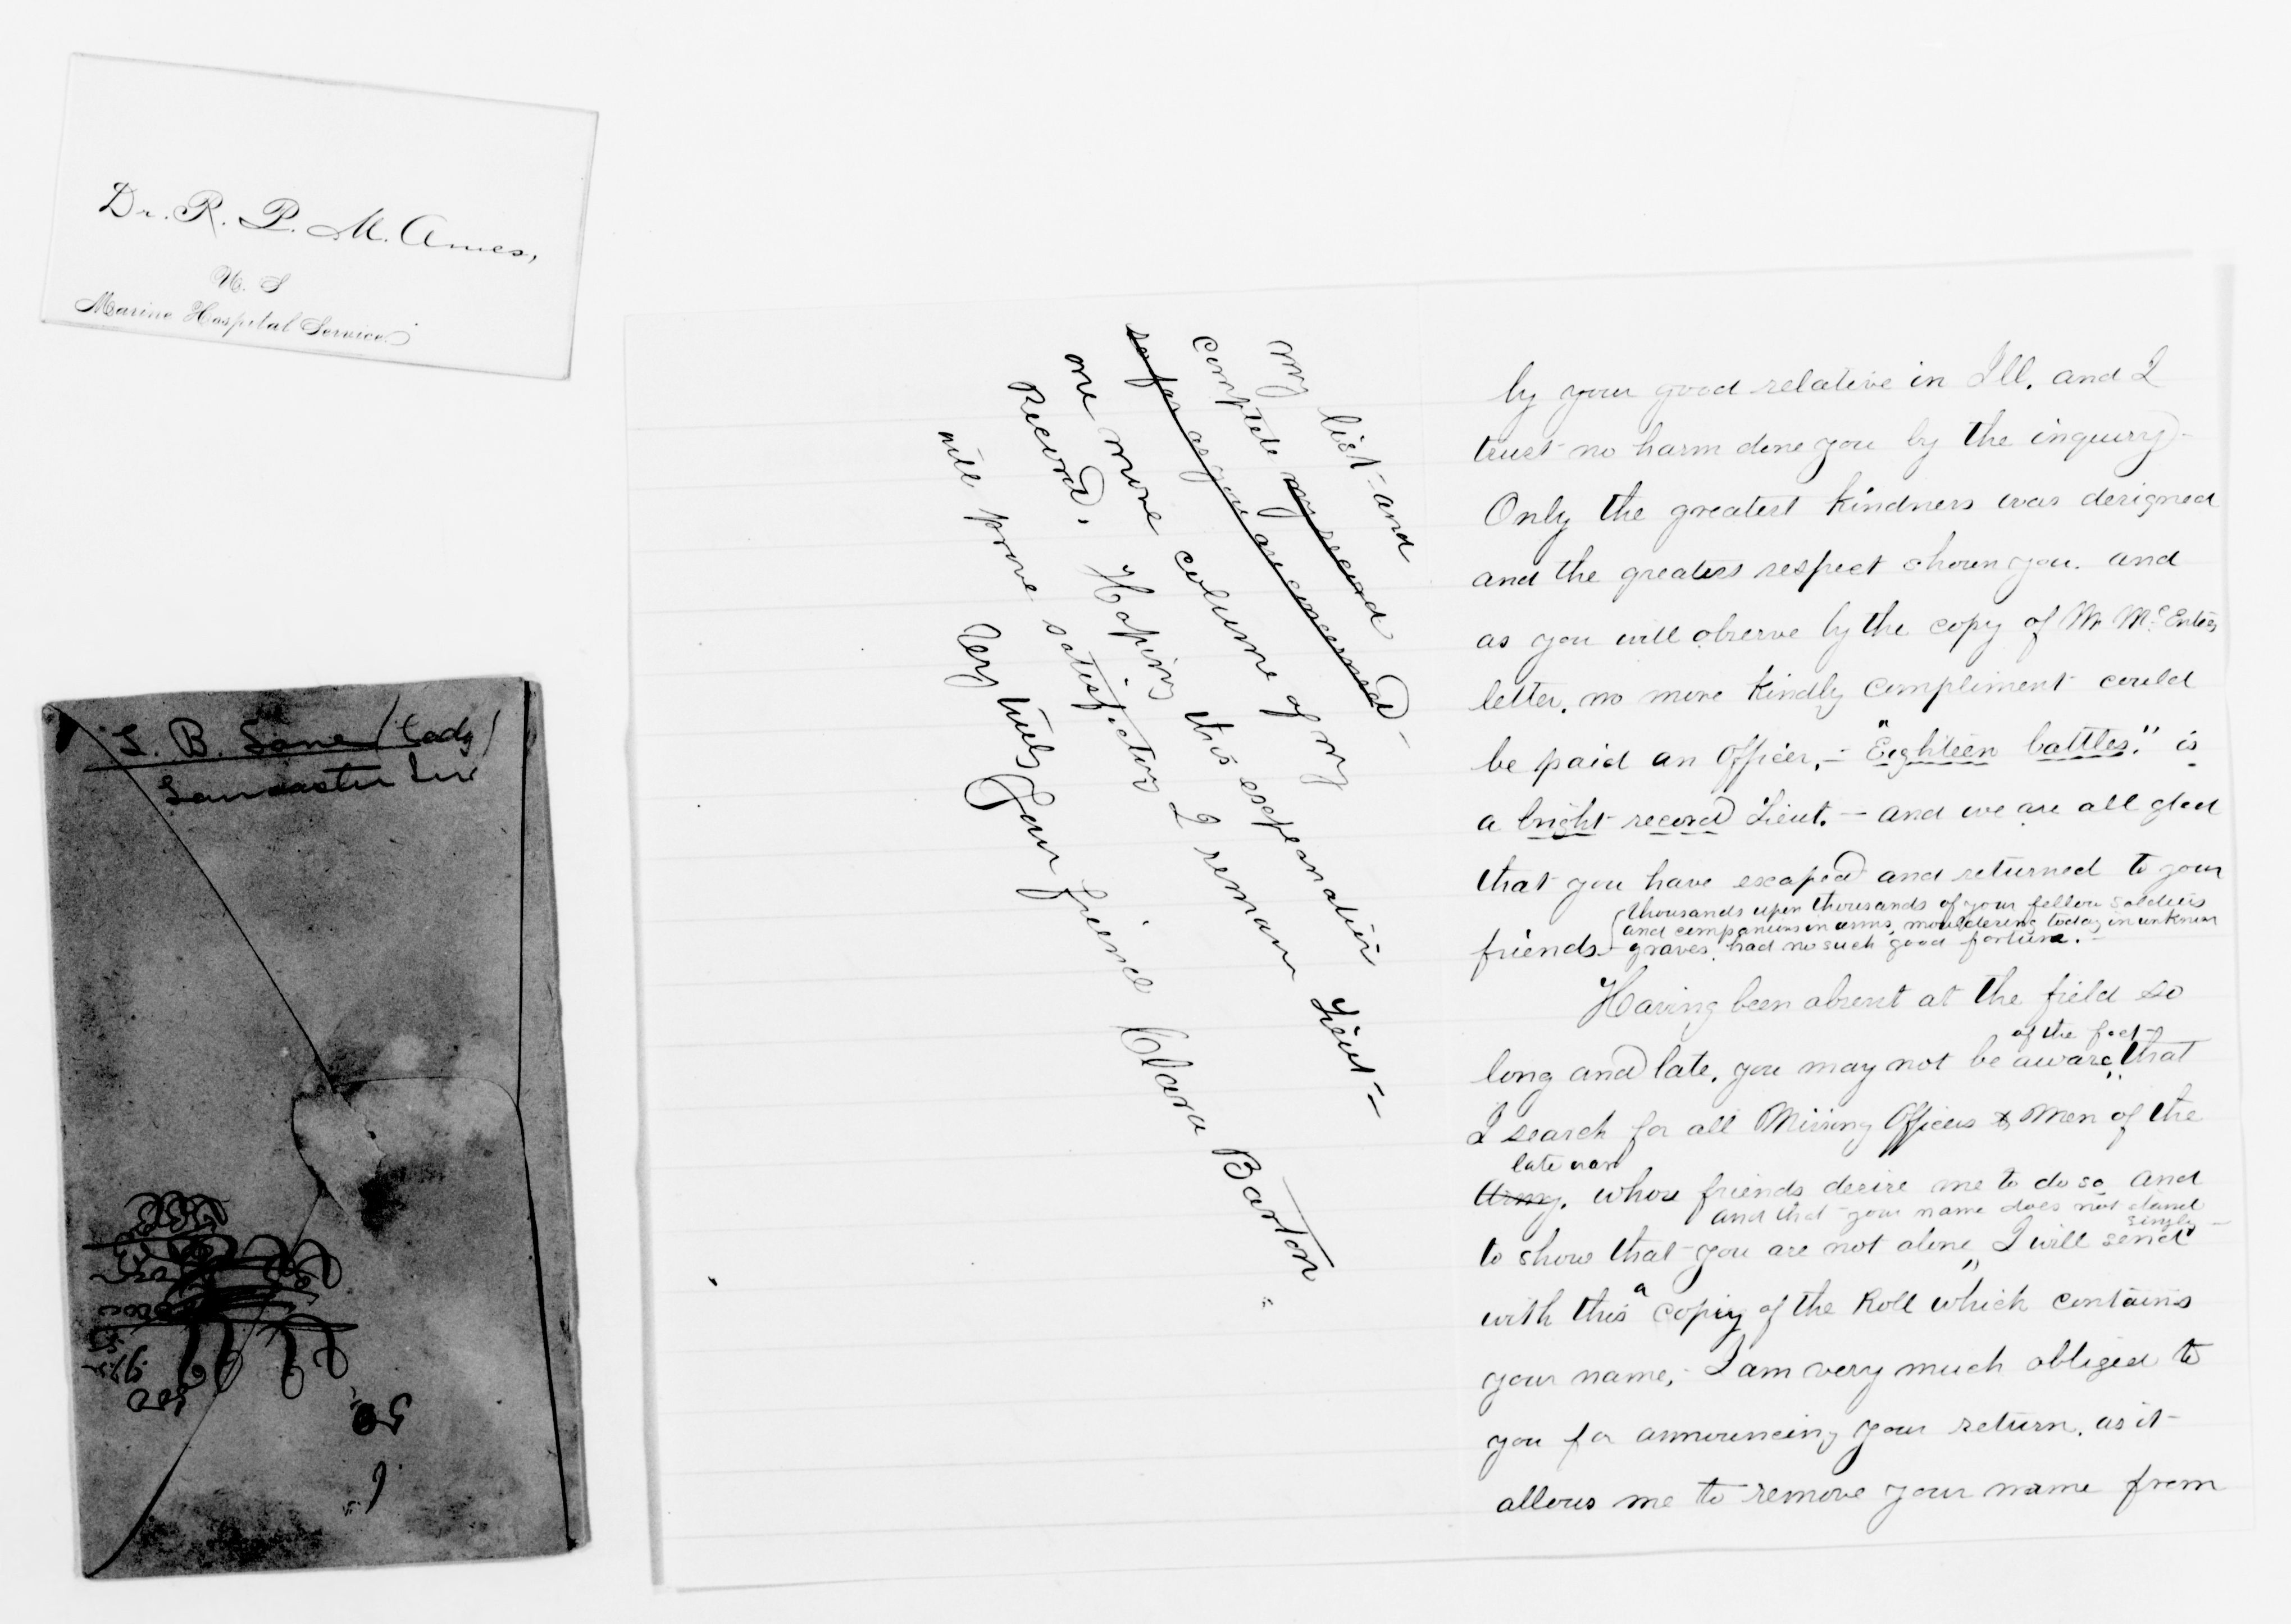 Dr. R. P. M. Ames,
U. S
Marine Hospital Service.
L. B. Lane (Cady)
Lancaster
50
by your good relative in Ill. and I
trust no harm done you by the inquiry -
Only the greatest kindness was designed
and the greatess respect shown you. and
as you will observe by the copy of Mr McEnties
letter. no more kindly compliment could
be paid an Officer, - "Eighteen battles." is
a bright record Lieut. - and we are all glad
that you have escaped and returned to your
thousands upon thousands of your fellow soldiers
and companions in arms, mouldering today in unknown
friends - graves, had no such good fortune. -
Having been absent at the field so
of the fact
long and late, you may not be aware, that
I search for all Missing Officers & Men of the
late war
Army. whose friends desire me to do so and
and that your name does not stand
singly -
to show that you are not alone, I will send
a
with this copy of the Roll which contains
your name, - I am very much obliged to
you for announcing your return. as it -
allows me to remove your name from
my list - and
complete my record -
so far as you are concerned -
one more column of my
Record. Hoping this explanation
will prove satisfactory I remain Lieut -
Very truly
Your friend Clara Barton